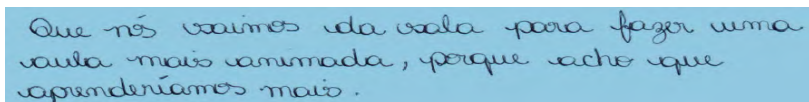 Que nós saímos da sala para fazer uma
aula mais animada, porque acho que
aprenderíamos mais.